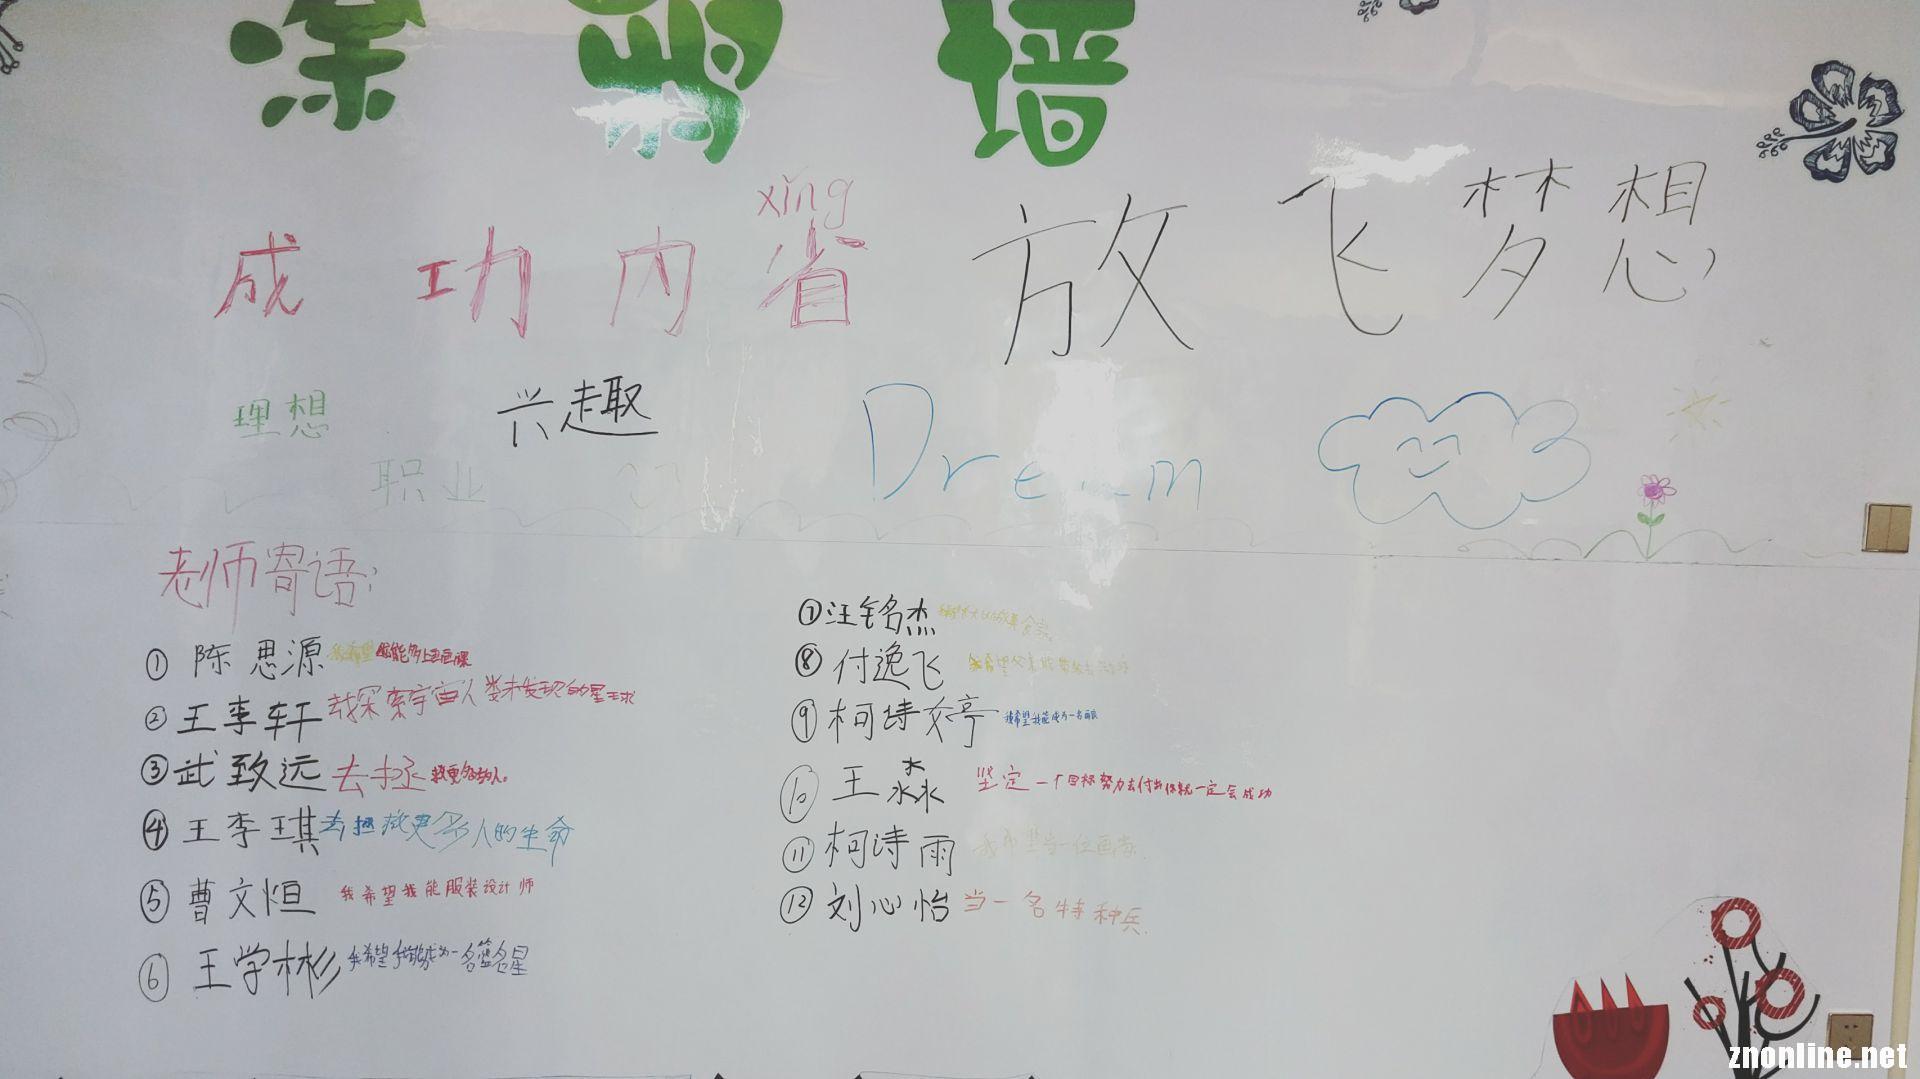 涂鸦墙
xǐng
成功内省 放飞梦想
理想 兴趣 Dream
职业
老师寄语:
① 陈思源 我希望能多上画画课
② 王李轩 去探索宇宙人类未发现的星球
③ 武致远 去拯救更多的人。
④ 王李琪 去拯救更多人的生命
⑤ 曹文恒 我希望我能服装设计师
⑥ 王学彬 我希望我能成为一名篮名星
⑦ 汪铭杰
⑧ 付逸飞 我希望
⑨ 柯诗婷 我希望我能成为一名画家
⑩ 王淼 坚定一个目标努力去付出你就一定会成功
⑪ 柯诗雨 我希望当一位画家.
⑫ 刘心怡 当一名特种兵.
znonline.net